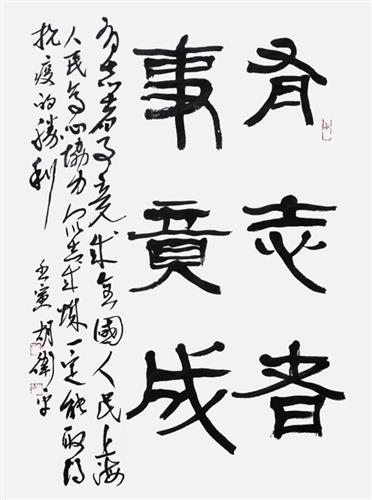 有志者
事竟成
有志者事竟成全國人民上海
人民齐心協力众志成城一定能取得
抗疫的勝利
壬寅胡衛平